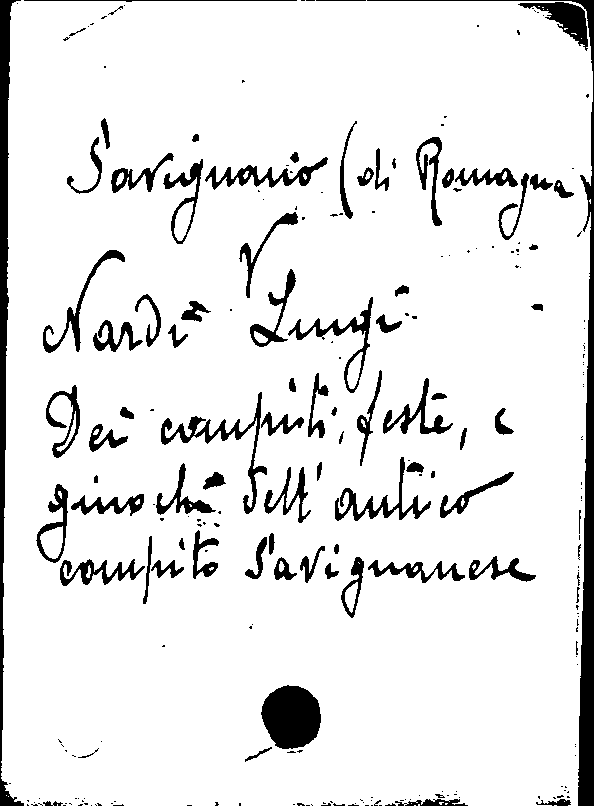 Savignano (di Romagna)
V
Nardi Luigi
Dei compiti, feste, e
giuochi dell'antico
compito Savignanese